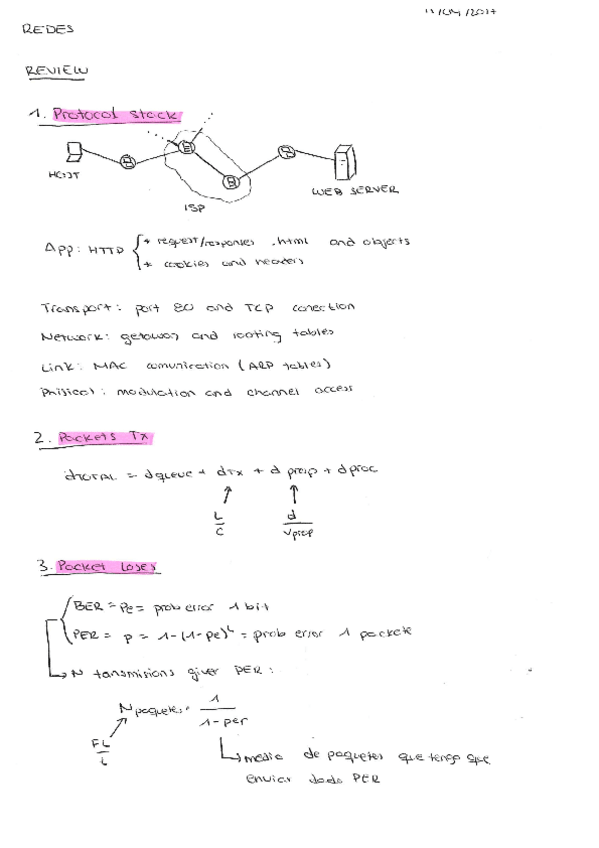 11/04/2017
REDES
REVIEW
1. Protocol stack
HOST
WEB SERVER
ISP
App: HTTP { * request/responses .html and objects
* cookies and headers
Transport: port 80 and TCP conection
Network: getaway and rooting tables
Link: MAC comunication (ARP tables)
Phisical: modulation and channel access
2. Packets Tx
dTOTAL = dqueue + dTx + d prop + dproc
L/C d/vprop
3. Packet Loses
BER = Pe = prob error 1 bit
PER = p = 1-(1-pe)^L = prob error 1 packete
N tansmisions given PER:
Npaquetes = 1/(1-per)
FL/L
media de paquetes que tengo que
enviar dado PER